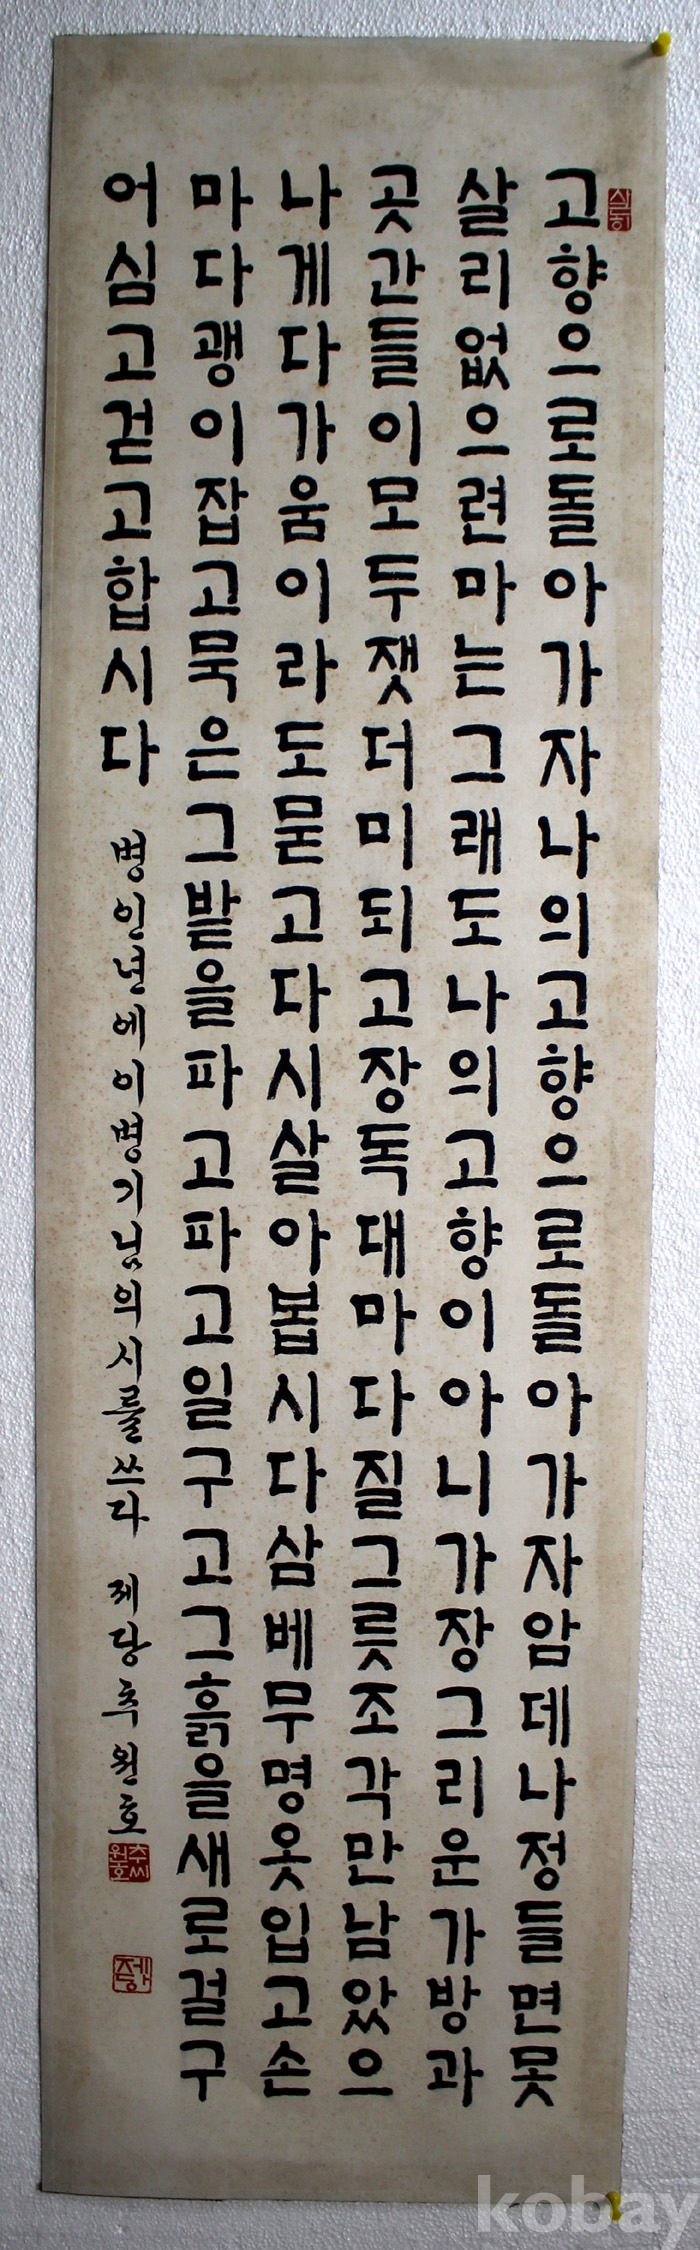 고향으로돌아가자나의고향으로돌아가자암데나정들면못
살리없으련마는그래도나의고향이아니가장그리운가방과
곳간들이모두잿더미되고장독대마다질그릇조각만남았으
나게다가움이라도묻고다시살아봅시다삼베무명옷입고손
마다괭이잡고묵은그밭을파고파고일구고그흙을새로걸구
어심고걷고합시다
병인년에이병기님의시를쓰다 제당추원호
추씨원호
kobay